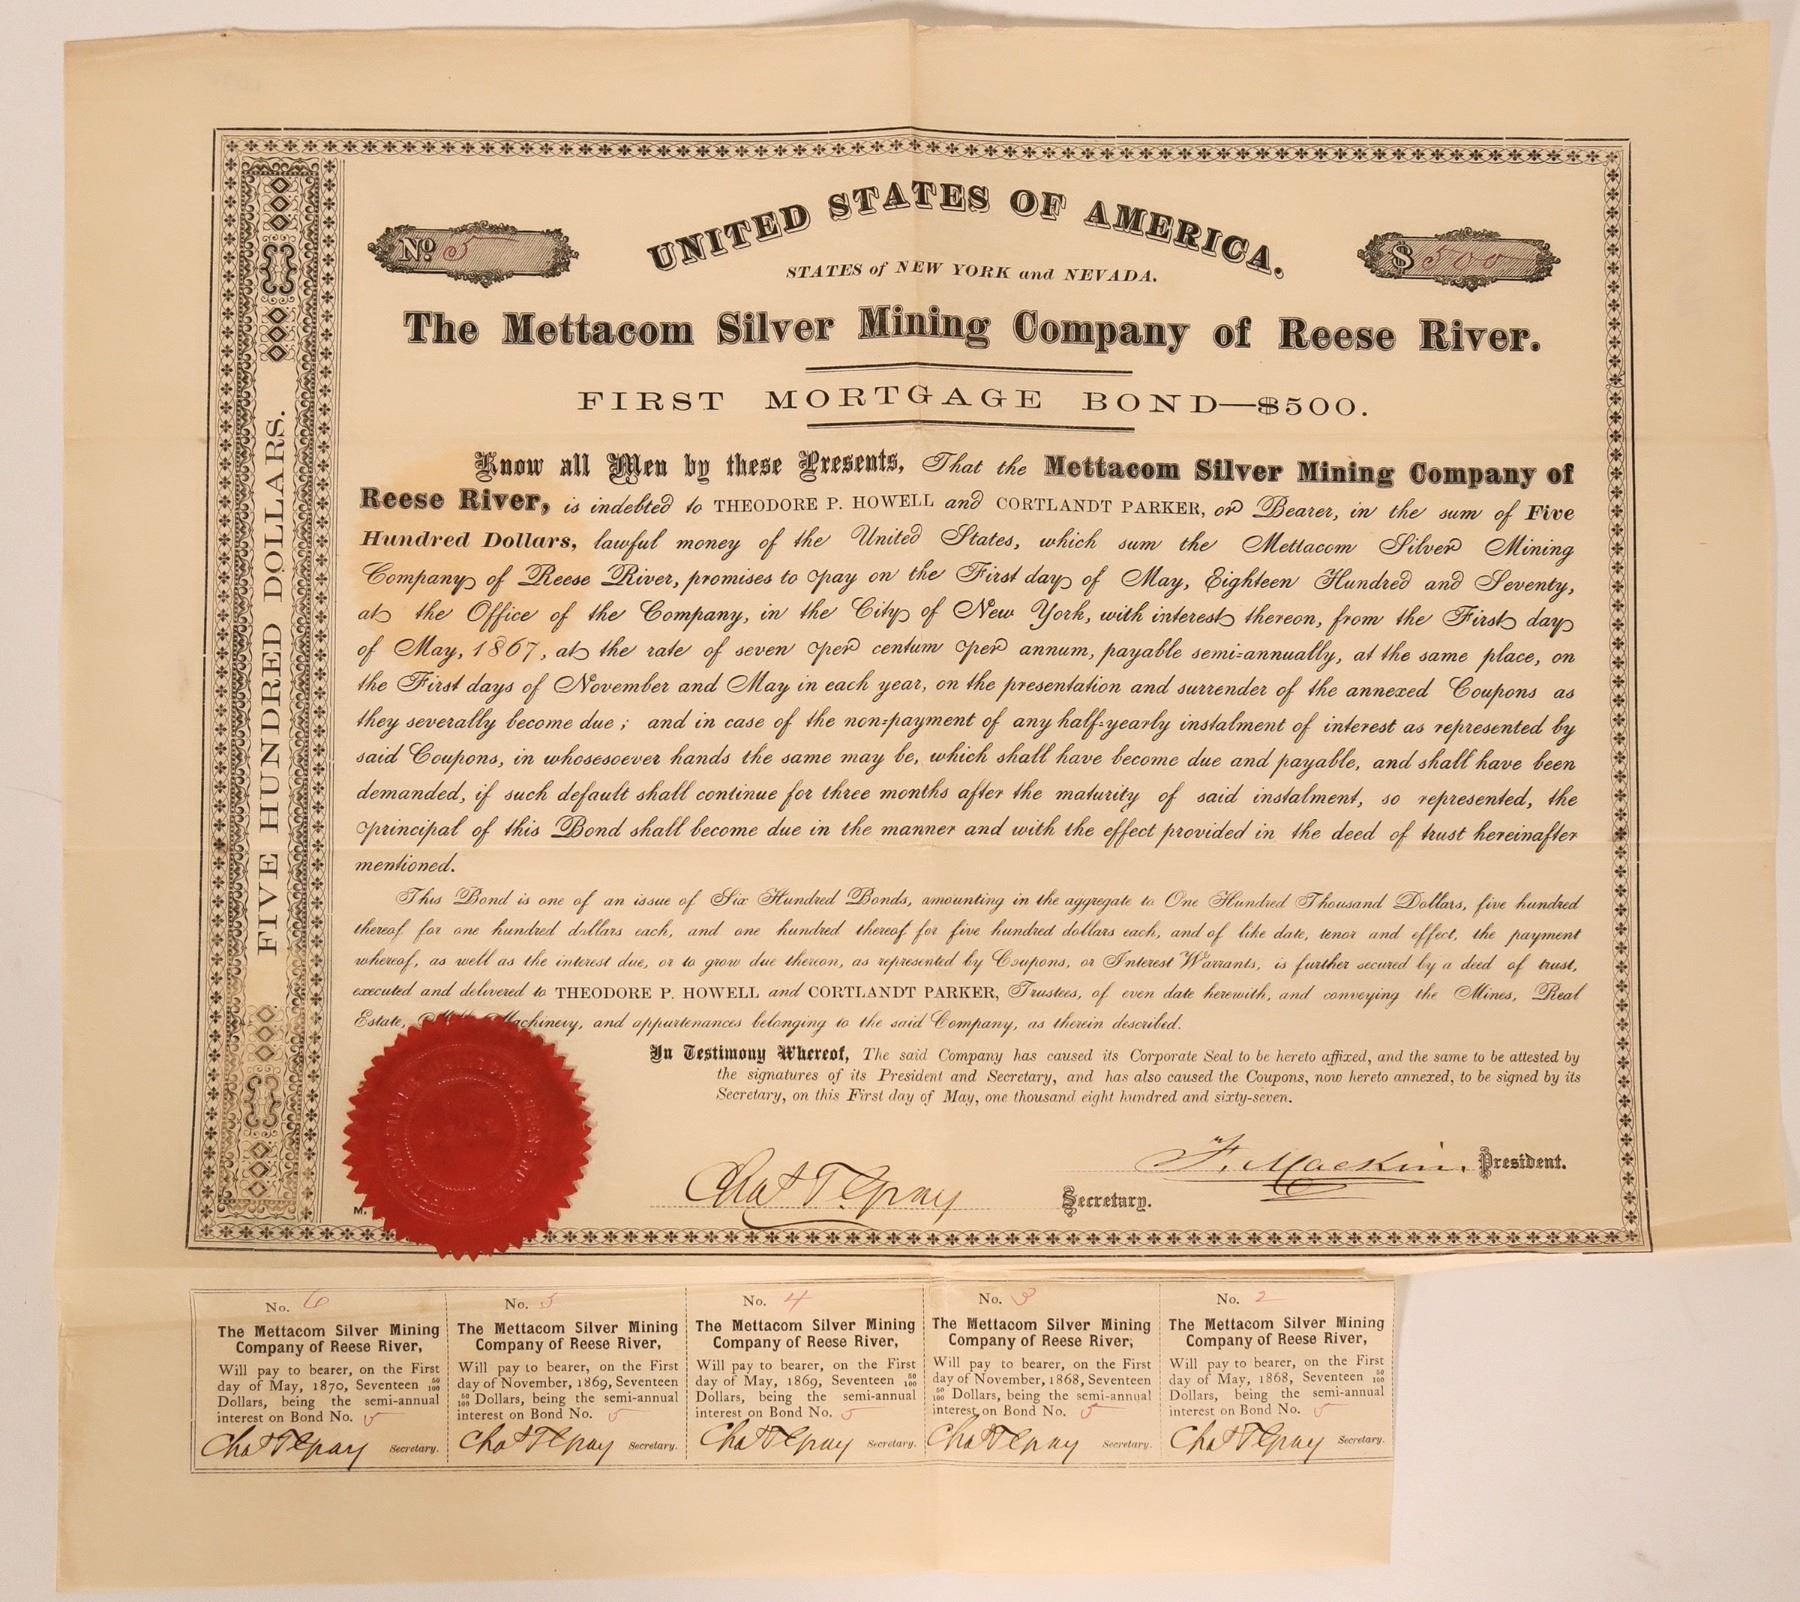 No 5
UNITED STATES OF AMERICA.
$ 500
STATES of NEW YORK and NEVADA.
The Mettacom Silver Mining Company of Reese River.
FIRST MORTGAGE BOND—$500.
FIVE HUNDRED DOLLARS.
Know all Men by these Presents, That the Mettacom Silver Mining Company of
Reese River, is indebted to THEODORE P. HOWELL and CORTLANDT PARKER, or Bearer, in the sum of Five
Hundred Dollars, lawful money of the United States, which sum the Mettacom Silver Mining
Company of Reese River, promises to pay on the First day of May, Eighteen Hundred and Seventy,
at the Office of the Company, in the City of New York, with interest thereon, from the First day
of May, 1867, at the rate of seven per centum per annum, payable semi-annually, at the same place, on
the First days of November and May in each year, on the presentation and surrender of the annexed Coupons as
they severally become due; and in case of the non-payment of any half-yearly instalment of interest as represented by
said Coupons, in whosesoever hands the same may be, which shall have become due and payable, and shall have been
demanded, if such default shall continue for three months after the maturity of said instalment, so represented, the
principal of this Bond shall become due in the manner and with the effect provided in the deed of trust hereinafter
mentioned.
This Bond is one of an issue of Six Hundred Bonds, amounting in the aggregate to One Hundred Thousand Dollars, five hundred
thereof for one hundred dollars each, and one hundred thereof for five hundred dollars each, and of like date, tenor and effect, the payment
whereof, as well as the interest due, or to grow due thereon, as represented by Coupons, or Interest Warrants, is further secured by a deed of trust,
executed and delivered to THEODORE P. HOWELL and CORTLANDT PARKER, Trustees, of even date herewith, and conveying the Mines, Real
Estate, Machinery, and appurtenances belonging to the said Company, as therein described.
In Testimony Whereof, The said Company has caused its Corporate Seal to be hereto affixed, and the same to be attested by
the signatures of its President and Secretary, and has also caused the Coupons, now hereto annexed, to be signed by its
Secretary, on this First day of May, one thousand eight hundred and sixty-seven.
F. Mackin. President.
Chas T Gray Secretary.
M.
No. 6
The Mettacom Silver Mining
Company of Reese River,
Will pay to bearer, on the First
day of May, 1870, Seventeen 50/100
Dollars, being the semi-annual
interest on Bond No. 5
Chas T Gray Secretary.
No. 5
The Mettacom Silver Mining
Company of Reese River,
Will pay to bearer, on the First
day of November, 1869, Seventeen
50/100 Dollars, being the semi-annual
interest on Bond No. 5
Chas T Gray Secretary.
No. 4
The Mettacom Silver Mining
Company of Reese River,
Will pay to bearer, on the First
day of May, 1869, Seventeen 50/100
Dollars, being the semi-annual
interest on Bond No. 5
Chas T Gray Secretary.
No. 3
The Mettacom Silver Mining
Company of Reese River,
Will pay to bearer, on the First
day of November, 1868, Seventeen
50/100 Dollars, being the semi-annual
interest on Bond No. 5
Chas T Gray Secretary.
No. 2
The Mettacom Silver Mining
Company of Reese River,
Will pay to bearer, on the First
day of May, 1868, Seventeen 50/100
Dollars, being the semi-annual
interest on Bond No. 5
Chas T Gray Secretary.